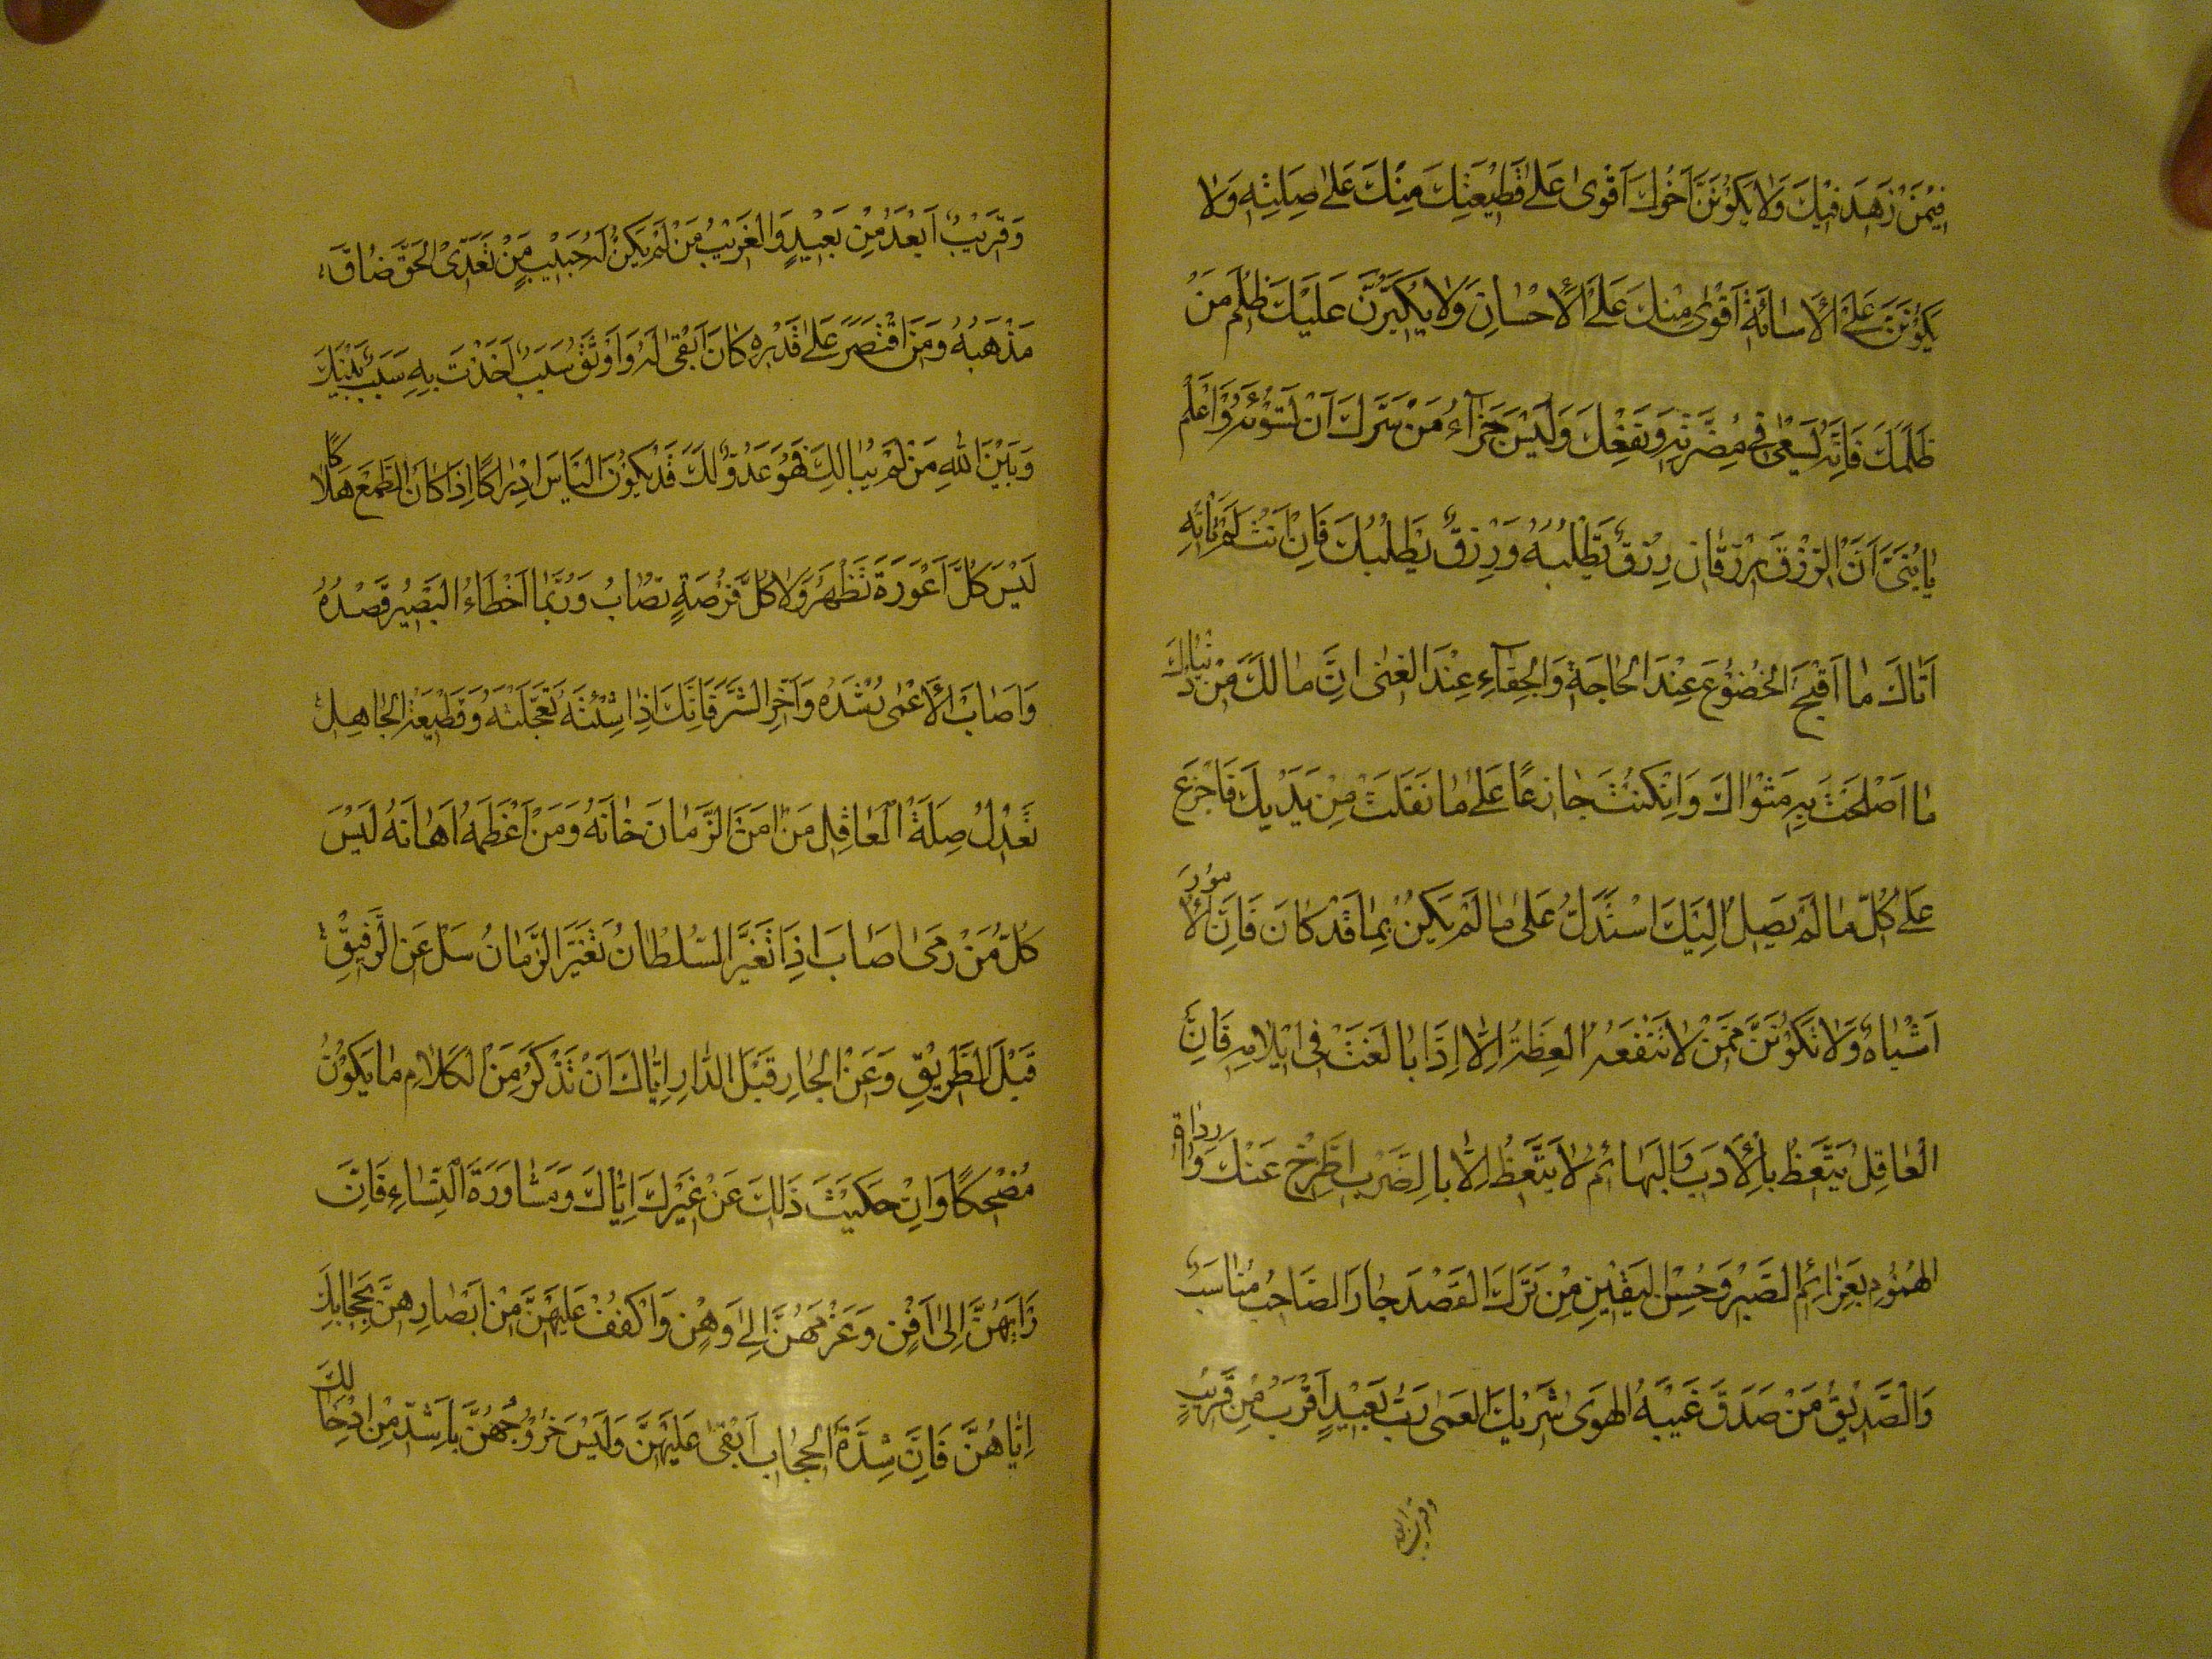 فِيْمَنْ زَهِدَ فِيْكَ وَلَا يَكُوْنَنَّ اَخُوْكَ اَقْوٰى عَلٰى قَطِيْعَتِكَ مِنْكَ عَلٰى صِلَتِهِ وَلَا
يَكُوْنَنَّ عَلَى الْاِسَائَةِ اَقْوٰى مِنْكَ عَلَى الْاِحْسَانِ وَلَا يَكْبُرَنَّ عَلَيْكَ ظُلْمُ مَنْ
ظَلَمَكَ فَاِنَّهُ يَسْعٰى فِى مَضَرَّتِهِ وَنَفْعِكَ وَلَيْسَ جَزَآءُ مَنْ سَرَّكَ اَنْ تَسُوْئَهُ وَاعْلَمْ
يَا بُنَىَّ اَنَّ الرِّزْقَ رِزْقَانِ رِزْقٌ تَطْلُبُهُ وَرِزْقٌ يَطْلُبُكَ فَاِنْ اَنْتَ لَمْ تَأْتِهِ
اَتَاكَ مَا اَقْبَحَ الْخُضُوْعَ عِنْدَ الْحَاجَةِ وَالْجِفَآءِ عِنْدَ الْغِنٰى اِنَّ مَا لَكَ مِنْ دُنْيَاكَ
مَا اَصْلَحْتَ بِهِ مَثْوَاكَ وَاِنْ كُنْتَ جَازِعًا عَلٰى مَا تَفَلَّتَ مِنْ يَدَيْكَ فَاجْزَعْ
عَلٰى كُلِّ مَا لَمْ يَصِلْ اِلَيْكَ اسْتَدِلَّ عَلٰى مَا لَمْ يَكُنْ بِمَا قَدْ كَانَ فَاِنَّ الْاُمُوْرَ
اَشْبَاهٌ وَلَا تَكُوْنَنَّ مِمَّنْ لَا تَنْفَعُهُ الْعِظَةُ اِلَّا اِذَا بَالَغْتَ فِى اِيْلَامِهِ فَاِنَّ
الْعَاقِلَ يَتَّعِظُ بِالْاَدَبِ وَالْبَهَائِمُ لَا يَتَّعِظُ اِلَّا بِالضَّرْبِ اطْرَحْ عَنْكَ وَارِدَاتِ
الْهُمُوْمِ بِعَزَائِمِ الصَّبْرِ وَحُسْنِ الْيَقِيْنِ مِنْ تَرَكَ الْقَصْدَ جَارَ الصَّاحِبُ مُنَاسَبٌ
وَالصَّدِيْقُ مَنْ صَدَقَ غَيْبَهُ الْهَوٰى شَرِيْكُ الْعَمٰى رُبَّ بَعِيْدٍ اَقْرَبُ مِنْ قَرِيْبٍ
وَقَرِيْبٌ اَبْعَدُ مِنْ بَعِيْدٍ وَالْغَرِيْبُ مَنْ لَمْ يَكُنْ لَهُ حَبِيْبٌ مَنْ تَعَدَّى الْحَقَّ ضَاقَ
مَذْهَبُهُ وَمَنِ اقْتَصَرَ عَلٰى قَدْرِهِ كَانَ اَبْقٰى لَهُ وَاَوْثَقُ سَبَبٍ اَخَذْتَ بِهِ سَبَبٌ بَيْنَكَ
وَبَيْنَ اللهِ مَنْ لَمْ يُبَالِكَ فَهُوَ عَدُوٌّ لَكَ قَدْ يَكُوْنُ الْيَاْسُ اِدْرَاكًا اِذَا كَانَ الطَّمَعُ هَلَاكًا
لَيْسَ كُلُّ عَوْرَةٍ تَظْهَرُ وَلَا كُلُّ فُرْصَةٍ تُصَابُ وَرُبَّمَا اَخْطَاءَ الْبَصِيْرُ قَصْدَهُ
وَاَصَابَ الْاَعْمٰى رُشْدَهُ وَاَخِّرِ الشَّرَّ فَاِنَّكَ اِذَا شِئْتَهُ تَعَجَّلْتَهُ وَقَطِيْعَةُ الْجَاهِلِ
تَعْدِلُ صِلَةَ الْعَاقِلِ مَنْ اَمِنَ الزَّمَانَ خَانَهُ وَمَنْ اَعْظَمَهُ اَهَانَهُ لَيْسَ
كُلُّ مَنْ رَمٰى اَصَابَ اِذَا تَغَيَّرَ السُّلْطَانُ تَغَيَّرَ الزَّمَانُ سَلْ عَنِ الرَّفِيْقِ
قَبْلَ الطَّرِيْقِ وَعَنِ الْجَارِ قَبْلَ الدَّارِ اِيَّاكَ اَنْ تَذْكُرَ مِنَ الْكَلَامِ مَا يَكُوْنُ
مُضْحِكًا وَاِنْ حَكَيْتَ ذٰلِكَ عَنْ غَيْرِكَ اِيَّاكَ وَمَشَاوَرَةَ النِّسَاءِ فَاِنَّ
رَاْيَهُنَّ اِلٰى اَفْنٍ وَعَزْمَهُنَّ اِلٰى وَهْنٍ وَاكْفُفْ عَلَيْهِنَّ مِنْ اَبْصَارِهِنَّ بِحِجَابِكَ
اِيَّاهُنَّ فَاِنَّ شِدَّةَ الْحِجَابِ اَبْقٰى عَلَيْهِنَّ وَلَيْسَ خُرُوْجُهُنَّ بِاَشَدَّ مِنْ اِدْخَالِكَ